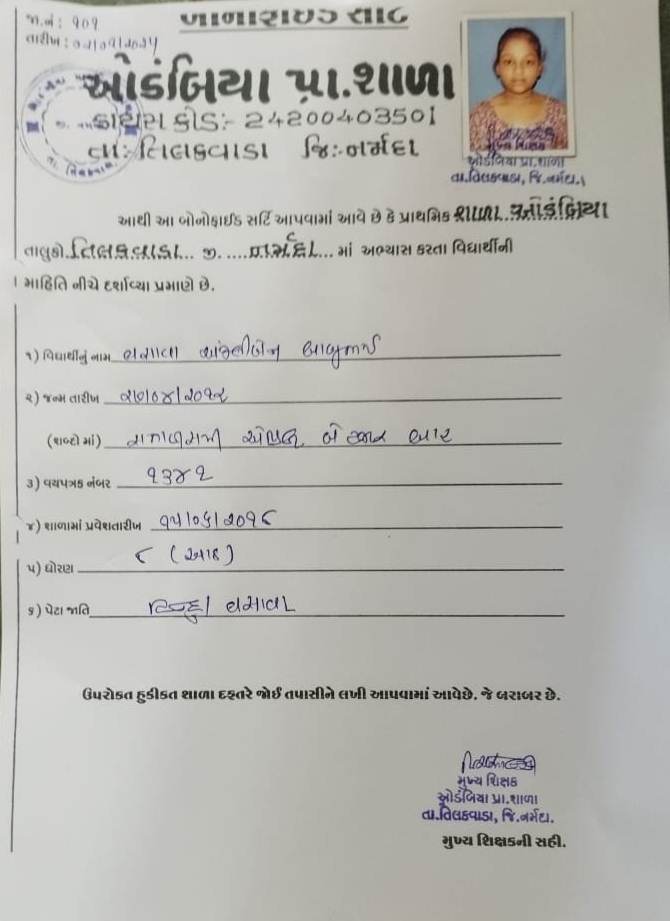 જા.નં : ૧૦૧
તારીખ :
ઓડંબિયા પ્રા.શાળા
ડાયસ કોડ:- 24200403501
તા:-તિલકવાડા જિ:-નર્મદા
મુખ્ય શિક્ષક
ઓડંબિયા પ્રા.શાળા
તા.તિલકવાડા, જિ.નર્મદા.
આથી આ બોનોફાઈડ સર્ટિ આપવામાં આવે છે કે પ્રાથમિક શાળા ઓડંબિયા
તાલુકો.તિલકવાડા... જી. ....નર્મદા... માં અભ્યાસ કરતા વિદ્યાર્થીની
માહિતિ નીચે દર્શાવ્યા પ્રમાણે છે.
૧) વિદ્યાર્થીનું નામ વસાવા અંજલીબેન બાબુભાઈ
૨) જન્મ તારીખ ૨૭/૦૪/૨૦૧૨
(શબ્દો માં) સત્તાવીસમી એપ્રિલ બે હજાર બાર
૩) વયપત્રક નંબર ૧૩૪૧
૪) શાળામાં પ્રવેશતારીખ ૧૫/૦૬/૨૦૧૮
૫) ધોરણ ૮ (આઠ)
૬) પેટા જાતિ હિન્દુ વસાવા
ઉપરોકત હકીકત શાળા દફતરે જોઈ તપાસીને લખી આપવામાં આવેછે. જે બરાબર છે.
મુખ્ય શિક્ષક
ઓડંબિયા પ્રા.શાળા
તા.તિલકવાડા, જિ.નર્મદા.
મુખ્ય શિક્ષકની સહી.